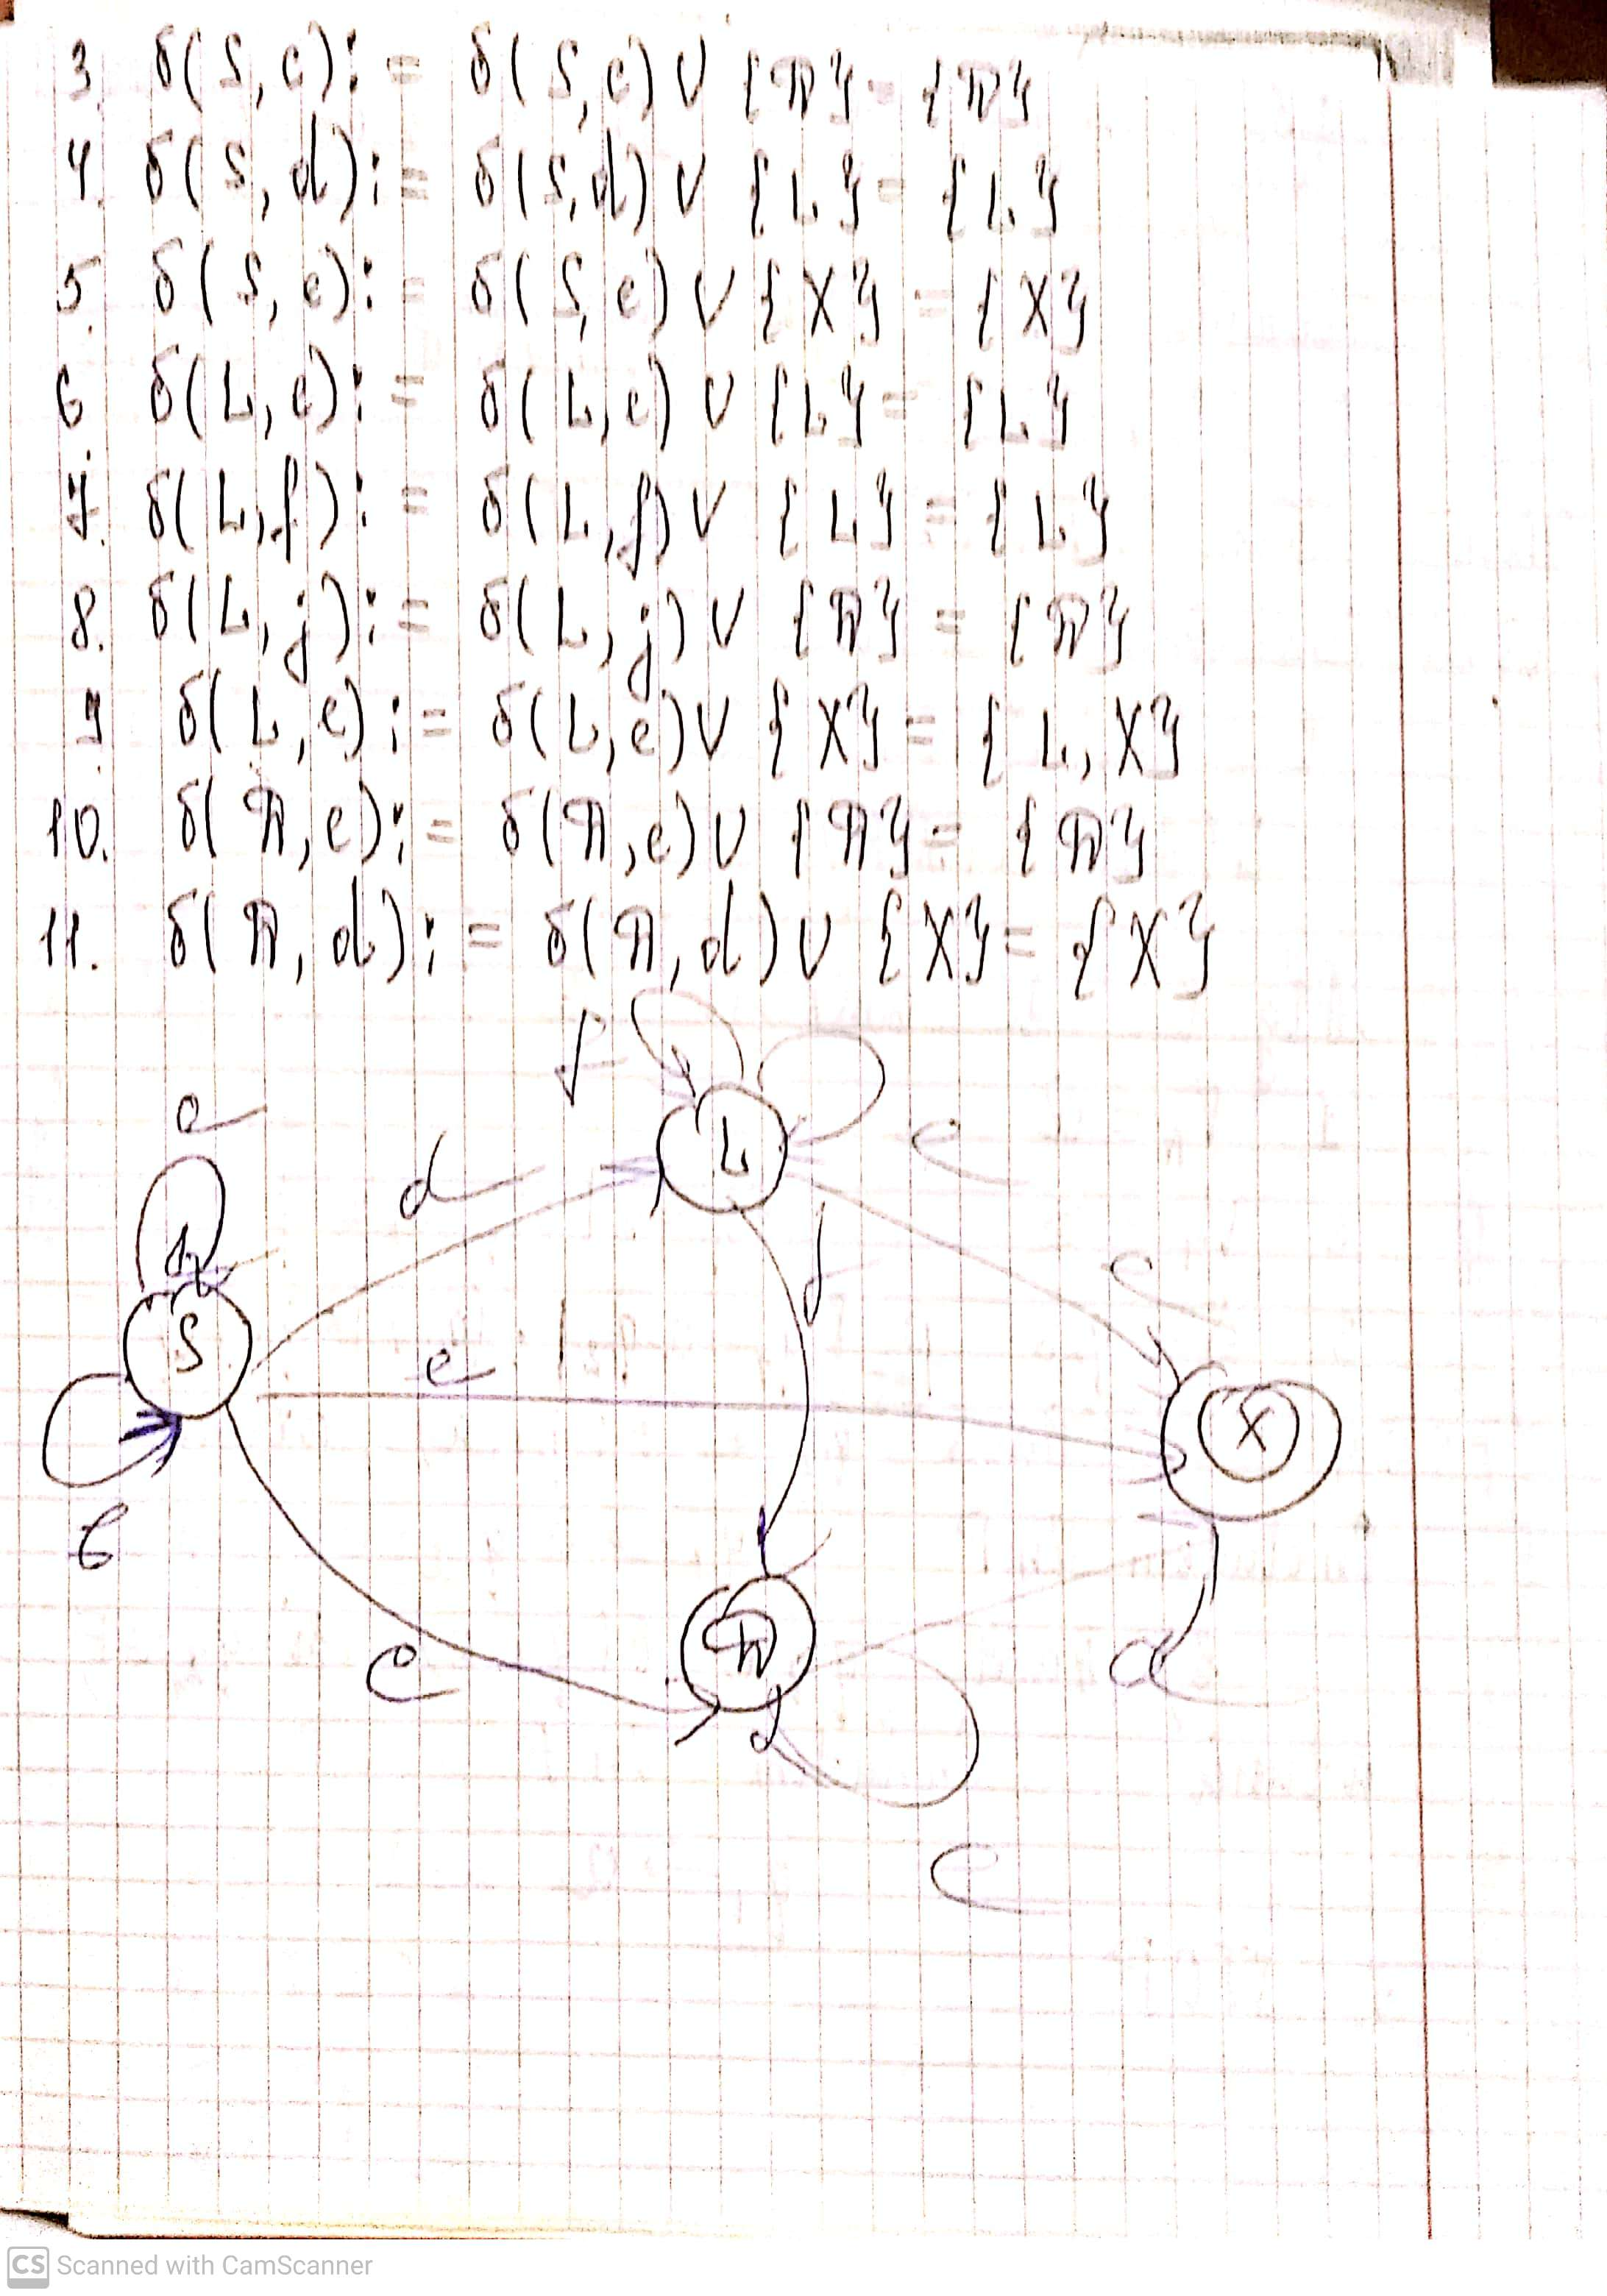 3. δ(S, c): = δ(S, c) ∪ {π} = {π}
4. δ(S, d): = δ(S, d) ∪ {L} = {L}
5. δ(S, e): = δ(S, e) ∪ {X} = {X}
6. δ(L, e): = δ(L, e) ∪ {L} = {L}
7. δ(L, f): = δ(L, f) ∪ {L} = {L}
8. δ(L, j): = δ(L, j) ∪ {π} = {π}
9. δ(L, e): = δ(L, e) ∪ {X} = {L, X}
10. δ(π, e): = δ(π, e) ∪ {π} = {π}
11. δ(π, d): = δ(π, d) ∪ {X} = {X}
f
a
d
L
e
j
e
S
e
X
b
π
c
d
e
CS Scanned with CamScanner